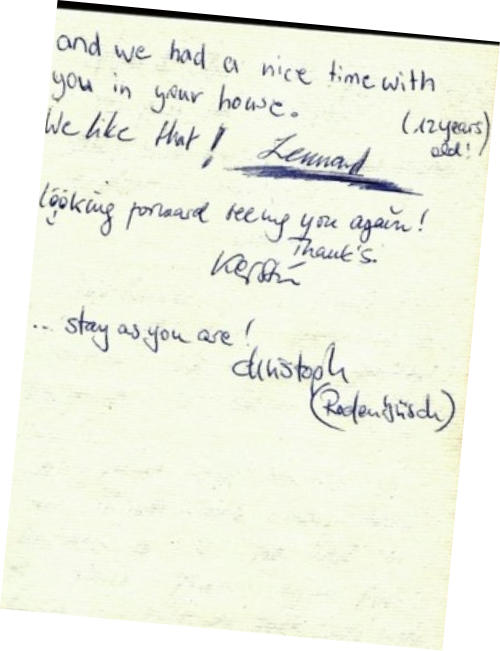 and we had a nice time with
you in your house.
We like that! Lennard (12 years old!)
looking forward seeing you again!
Thank's.
Kerstin
... stay as you are!
Christoph